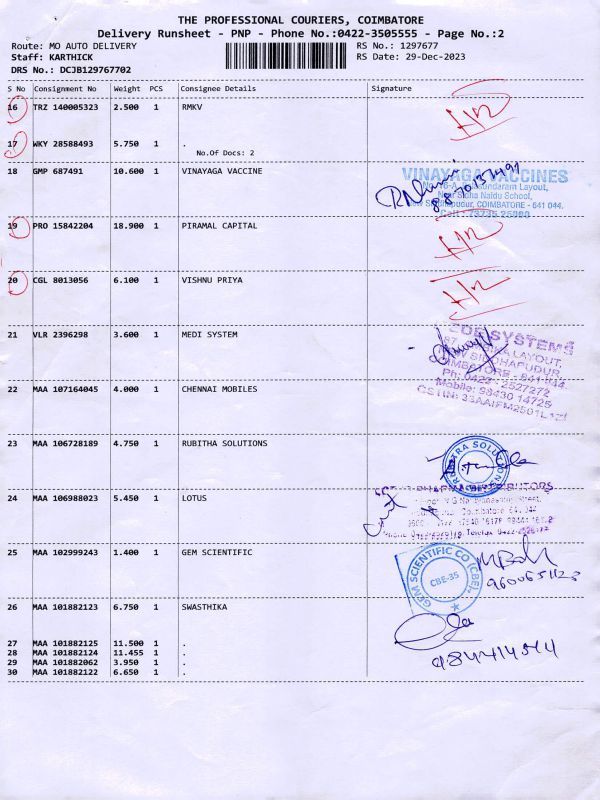 THE PROFESSIONAL COURIERS, COIMBATORE
Delivery Runsheet - PNP - Phone No.:0422-3505555 - Page No.:2
Route: MO AUTO DELIVERY
RS No.: 1297677
Staff: KARTHICK
RS Date: 29-Dec-2023
DRS No.: DCJB129767702
S No Consignment No Weight PCS Consignee Details Signature
16 TRZ 140005323 2.500 1 RMKV
17 WKY 28588493 5.750 1 .
No.Of Docs: 2
18 GMP 687491 10.600 1 VINAYAGA VACCINE
VINAYAGA VACCINES
Layout,
Near Sidha Naidu School,
COIMBATORE - 641 044.
19 PRO 15842204 18.900 1 PIRAMAL CAPITAL
20 CGL 8013056 6.100 1 VISHNU PRIYA
21 VLR 2396298 3.600 1 MEDI SYSTEM
SYSTEMS
LAYOUT,
SIDDHAPUDUR,
Ph: 0422 - 2527272
Mobile: 98430 14725
22 MAA 107164045 4.000 1 CHENNAI MOBILES
23 MAA 106728189 4.750 1 RUBITHA SOLUTIONS
24 MAA 106988023 5.450 1 LOTUS
25 MAA 102999243 1.400 1 GEM SCIENTIFIC
GEM SCIENTIFIC CO (CBE).
CBE-35
26 MAA 101882123 6.750 1 SWASTHIKA
27 MAA 101882125 11.500 1 .
28 MAA 101882124 11.455 1 .
29 MAA 101882062 3.950 1 .
30 MAA 101882122 6.650 1 .